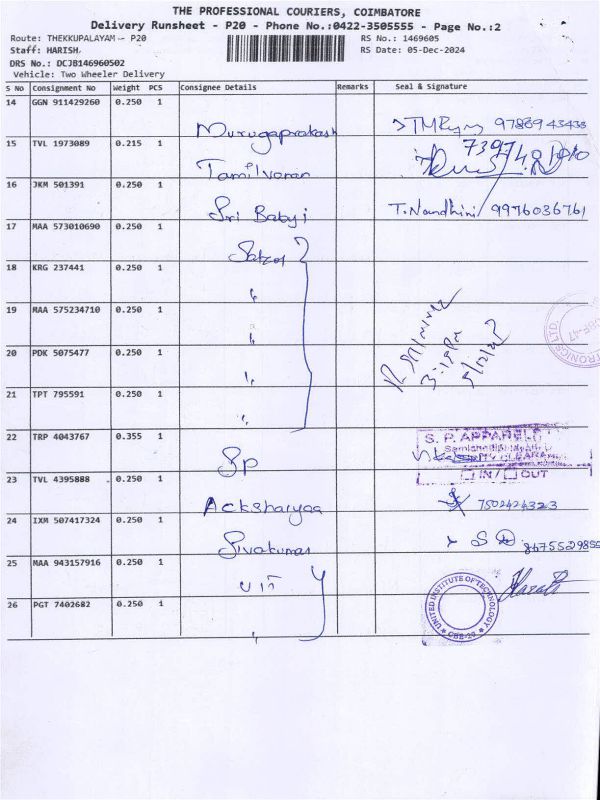 THE PROFESSIONAL COURIERS, COIMBATORE
Delivery Runsheet - P20 - Phone No.:0422-3505555 - Page No.:2
Route: THEKKUPALAYAM - P20 RS No.: 1469605
Staff: HARISH. RS Date: 05-Dec-2024
DRS No.: DCJB146960502
Vehicle: Two Wheeler Delivery
S No Consignment No Weight PCS Consignee Details Remarks Seal & Signature
14 GGN 911429260 0.250 1
Murugaprakash 97889 43433
15 TVL 1973089 0.215 1
Tamilvanan
16 JKM 501391 0.250 1
Sri Babyi T. Nandhini 9976036761
17 MAA 573010690 0.250 1
18 KRG 237441 0.250 1
"
19 MAA 575234710 0.250 1
"
20 PDK 5075477 0.250 1
"
21 TPT 795591 0.250 1
"
22 TRP 4043767 0.355 1
S.P. APPARELS
SP
IN / OUT
23 TVL 4395888 0.250 1
Acksharyaa 7502424323
24 IXM 507417324 0.250 1
Sivakumar
25 MAA 943157916 0.250 1
UIT
26 PGT 7402682 0.250 1
UNITED INSTITUTE OF TECHNOLOGY
CBE-20
"